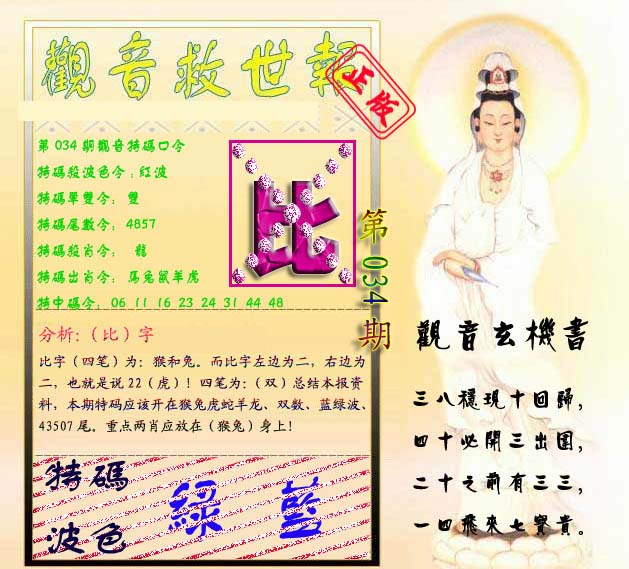 觀音救世報
正版
第 034 期觀音特碼口令
特碼殺波色令：紅波
特碼單雙令： 雙
特碼尾數令： 4857
特碼殺肖令： 龍
特碼出肖令： 馬兔鼠羊虎
特中碼令： 06 11 16 23 24 31 44 48
比
第 034 期
分析：（比）字
比字（四笔）为：猴和兔。而比字左边为二，右边为
二，也就是说 22（虎）！四笔为：（双）总结本报资
料，本期特码应该开在猴兔虎蛇羊龙、双数、蓝绿波、
43507 尾。重点两肖应放在（猴兔）身上！
特碼
波色
綠 藍
觀音玄機書
三八穩現十回歸，
四十必開三出围，
二十之前有三三，
一四飛來七寶貴。